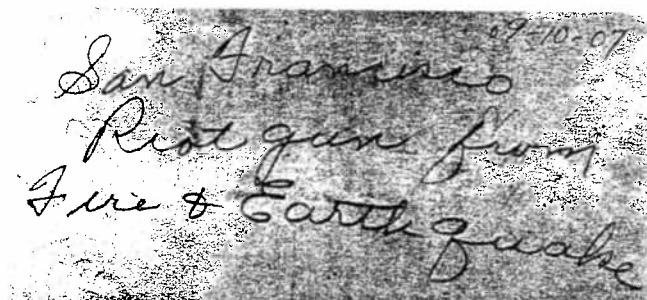 09-10-07
San Francisco
Riot gun from
Fire & Earthquake